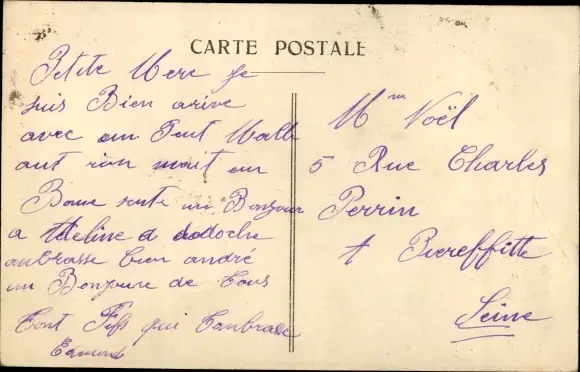 CARTE POSTALE
Petite Mere Je
suis Bien arive
avec un Peut Malle
aut mait en
Bonne sente un Bonjour
a Adeline a dodoche
anbrasse bien andré
un Bonjoure de Tous
Tont Fils qui Tanbrasse
Edmond
Mme Noël
5 Rue Charles
Perrin
Pierreffitte
Seine